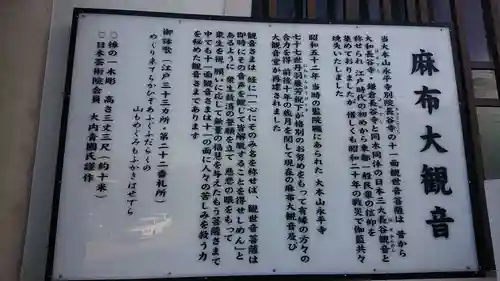 麻布大観音
当大本山永平寺別院長谷寺の十一面観世音菩薩は 昔から
大和長谷寺・鎌倉長谷寺と同木同体の日本三大長谷観音と
称せられ 江戸時代の初めから京都一般民衆の信仰を
集めておりましたが 惜しくも昭和二十年の戦災で伽藍共々
焼失いたしました
昭和五十二年 当時の監院職にあられた 大本山永平寺
七十七世丹羽廉芳禅師が格別のお努めをもって有縁の方々の
合力を得 前後十年の歳月を閲して現在の麻布大観音及び
大観音堂が再建されました
観音さまは 経に「一心にそのみ名を称せば、観世音菩薩は
即時にその音声を観じて皆解脱することを得せしめん」と
あるように 衆生済度の誓願を立て 慈悲の眼をもって
衆生を視 願いに応じて無量の福慧を与えたもう菩薩さまで
中でも十一面観音さまは十一の面に人々の苦しみを救う力
を秘めた観音さまであります
御詠歌（江戸三十三カ所・第二十二番札所）
めぐり来てらかんそあふぐふだらくの
山もめぐみもふかきはせでら
◎楠の一木彫 高さ三丈三尺（約十米）
◎日本芸術院会員 大内青圃氏謹作